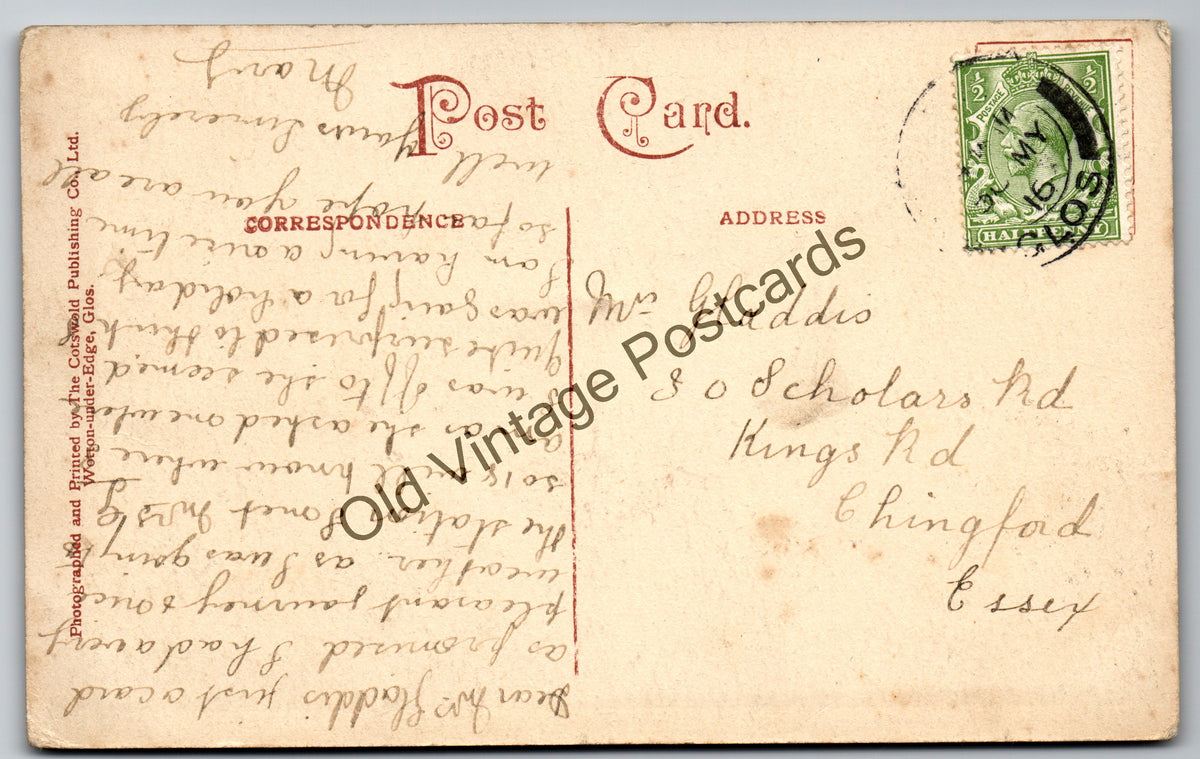 Post Card.
CORRESPONDENCE
ADDRESS
½ ½
POSTAGE
HALFPENNY
14 MY
16
GLOS
Mrs Gladdis
30 Scholars Rd
Kings Rd
Chingford
Essex
Dear Mrs Gladdis just a card
as promised I had a very
pleasant journey & nice
weather. as I was going to
the station I met Mrs
so is will know where
I as she asked me where
I was off to she seemed
quite surprised to think I
was going for a holiday
I am having a time
so far hope you are all
well
yours sincerely
Mary
Photographed and Printed by The Cotswold Publishing Co., Ltd.
Wotton-under-Edge, Glos.
Old Vintage Postcards